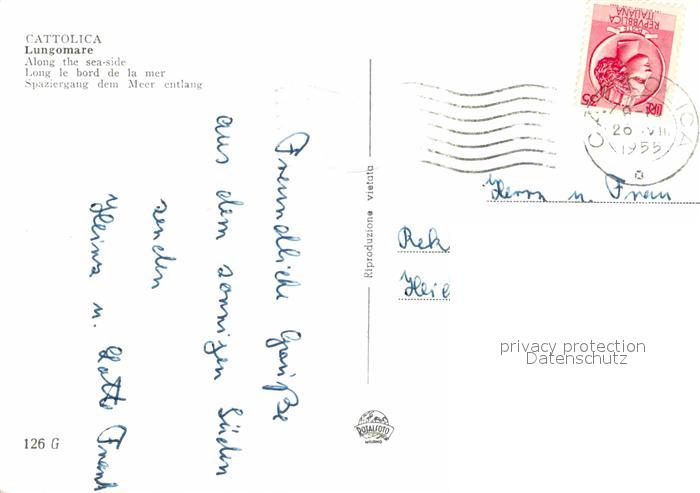 CATTOLICA
Lungomare
Along the sea-side
Long le bord de la mer
Spaziergang dem Meer entlang
Freundliche Grüße
aus dem sonnigen Süden
senden
Heinz u. Lotte
126 G
Riproduzione vietata
ROTALFOTO
MILANO
POSTE
REPVBBLICA
ITALIANA
LIRE 35
CATTOLICA
20 VII
1955
Herrn u. Frau
privacy protection
Datenschutz